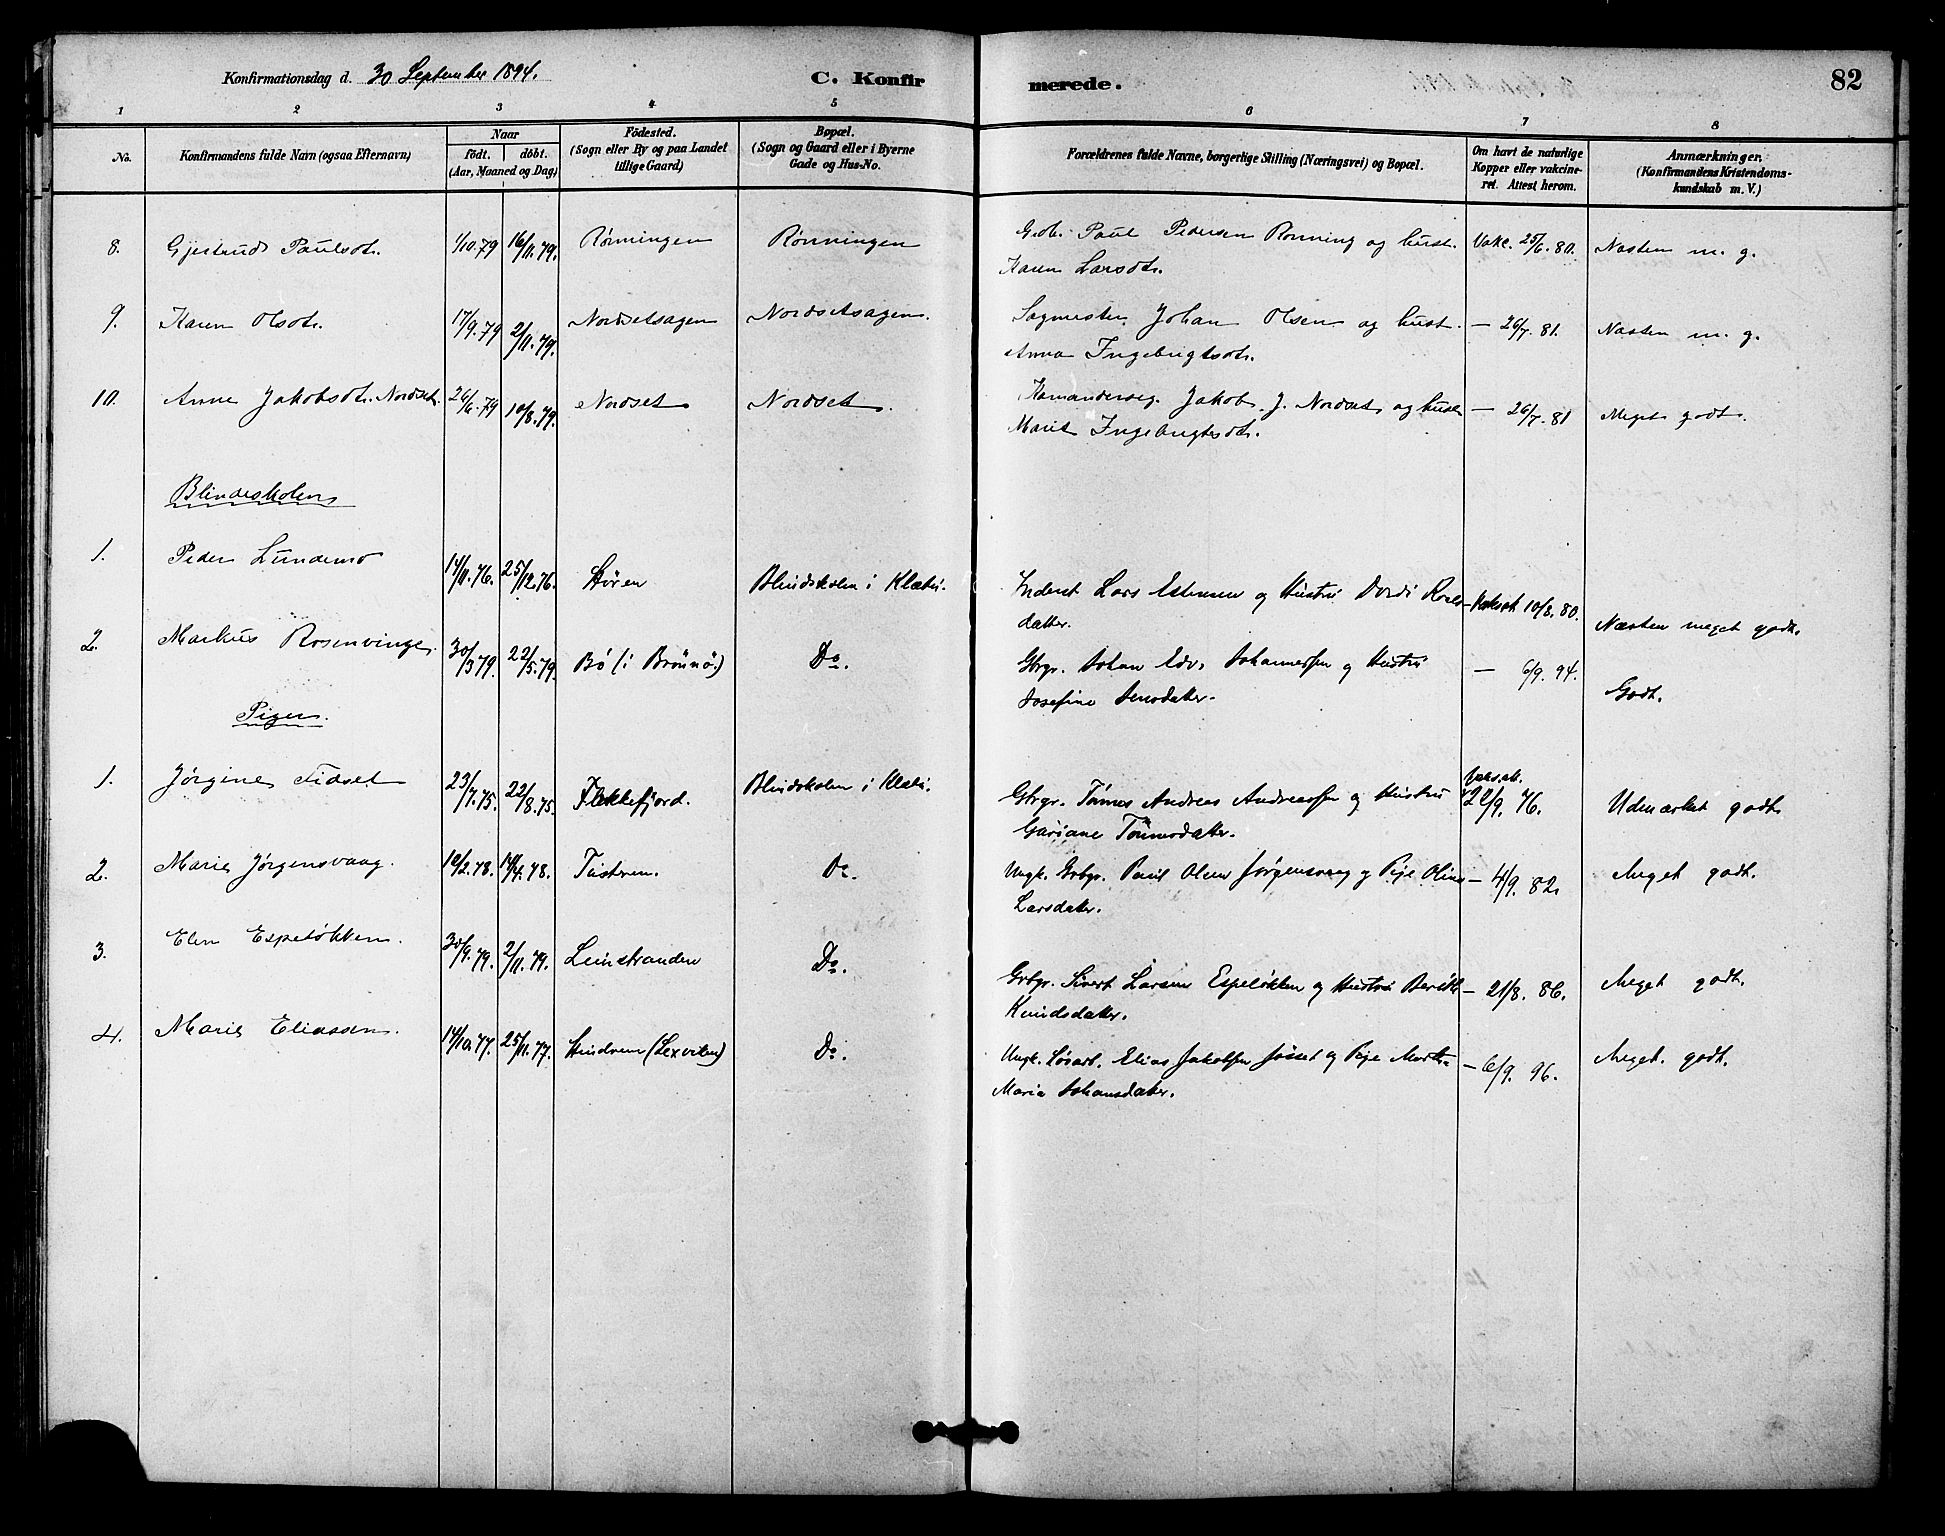 Konfirmationsdag d. 30 September 1894.
C. Konfirmerede.
82
1 2 3 4 5 6 7 8
No.
Konfirmandens fulde Navn (ogsaa Efternavn)
Naar
født. døbt.
(Aar, Maaned og Dag)
Fødested.
(Sogn eller By og paa Landet
tillige Gaard)
Bopæl.
(Sogn og Gaard eller i Byerne
Gade og Hus-No.
Forældrenes fulde Navne, borgerlige Stilling (Næringsvei) og Bopæl.
Om havt de naturlige
Kopper eller vakcine-
ret. Attest herom.
Anmærkninger.
(Konfirmandens Kristendoms-
kundskab m. V.)
8. Gjertrud Paulsdt. 1/10.79 16/11.79. Rønningen Rønningen Paul Pedersen Rønning og hust. Vakc. 25/6.80. Næsten m. g.
Karen Larsdt.
9. Karen Olsdt. 17/9.79 2/11.79. Nordsetsagen Nordsetsagen. Sagmester Johan Olsen og hust. — 26/7.81. Næsten m. g.
Anna Ingebrigtsdt.
10. Anne Jakobsdt. Nordset. 26/6.79 10/8.79. Nordset Nordset. Jakob J. Nordset og hust — 26/7.81 Meget godt.
Marit Ingebrigtsdt.
Blindeskolen
1. Peder Lundemo 14/11.76. 25/12.76. Støren Blindskolen i Klæbu. Inderst Lars Estensen og Hustru Dordi — Vaksat 10/8.80. Næsten meget godt.
datter.
2. Markus Rosenvinge. 30/3 79. 22/5.79. Bø (i Brønnø.) Do. Gbrgr. Johan Edv. Johannessen og Hustru — 6/9.94. Godt.
Josefine Jensdatter.
Piger.
1. Jørgine Fidset 23/7.75. 22/8.75. Flekkefjord. Blindskolen i Klæbu. Gbrgr. Tønnes Andreas Andreassen og Hustru Vaks. att. 22/9.76. Udmærket godt
Gariane Tønnesdatter.
2. Marie Jørgensvaag. 10/2.78. 14/4.78. Tusteren. Do. Ungk. Grbgr. Paul Olsen Jørgensvaag og Pige Oline — 4/9.82. Meget godt.
Larsdatter.
3. Elen Espeløkken. 30/9.79. 2/11.79. Leinstranden Do. Grbgr. Sivert Larsen Espeløkken og Hustru Berith — 21/8.86. Meget godt.
Knudsdatter.
4. Marie Eliassen. 14/10.77. 25/11.77. Hindrem (Lexviken) Do. Ungk. Løsarb. Elias Jakobsen Jøsset og Pige Martha — 6/9.96. Meget godt.
Maria Johansdatter.